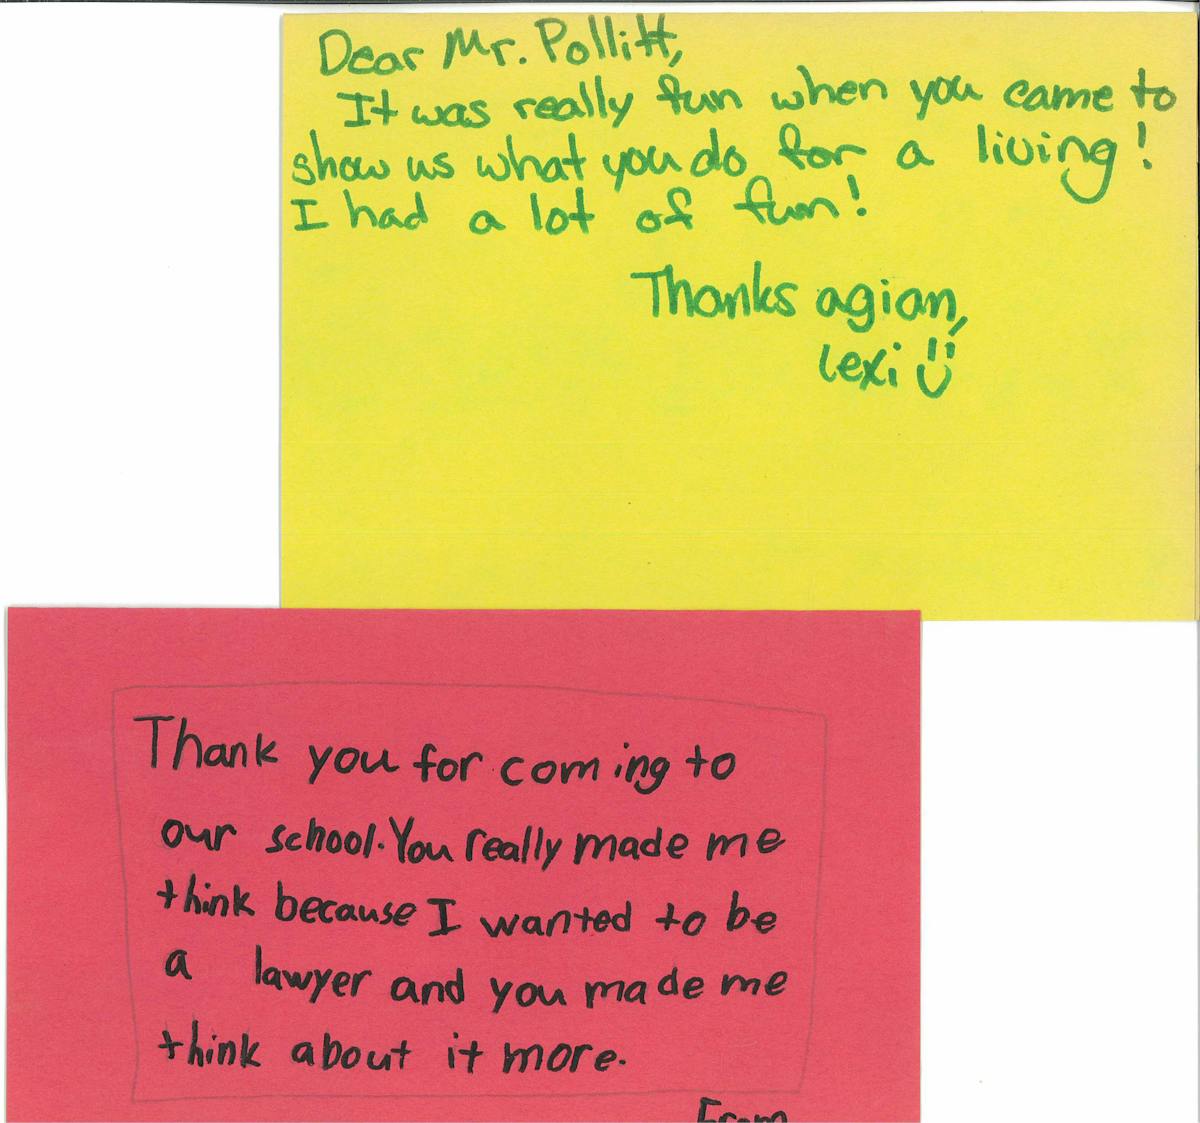 Dear Mr. Pollitt,
It was really fun when you came to
show us what you do for a living!
I had a lot of fun!
Thanks agian,
Lexi
Thank you for coming to
our school. You really made me
think because I wanted to be
a lawyer and you made me
think about it more.
From